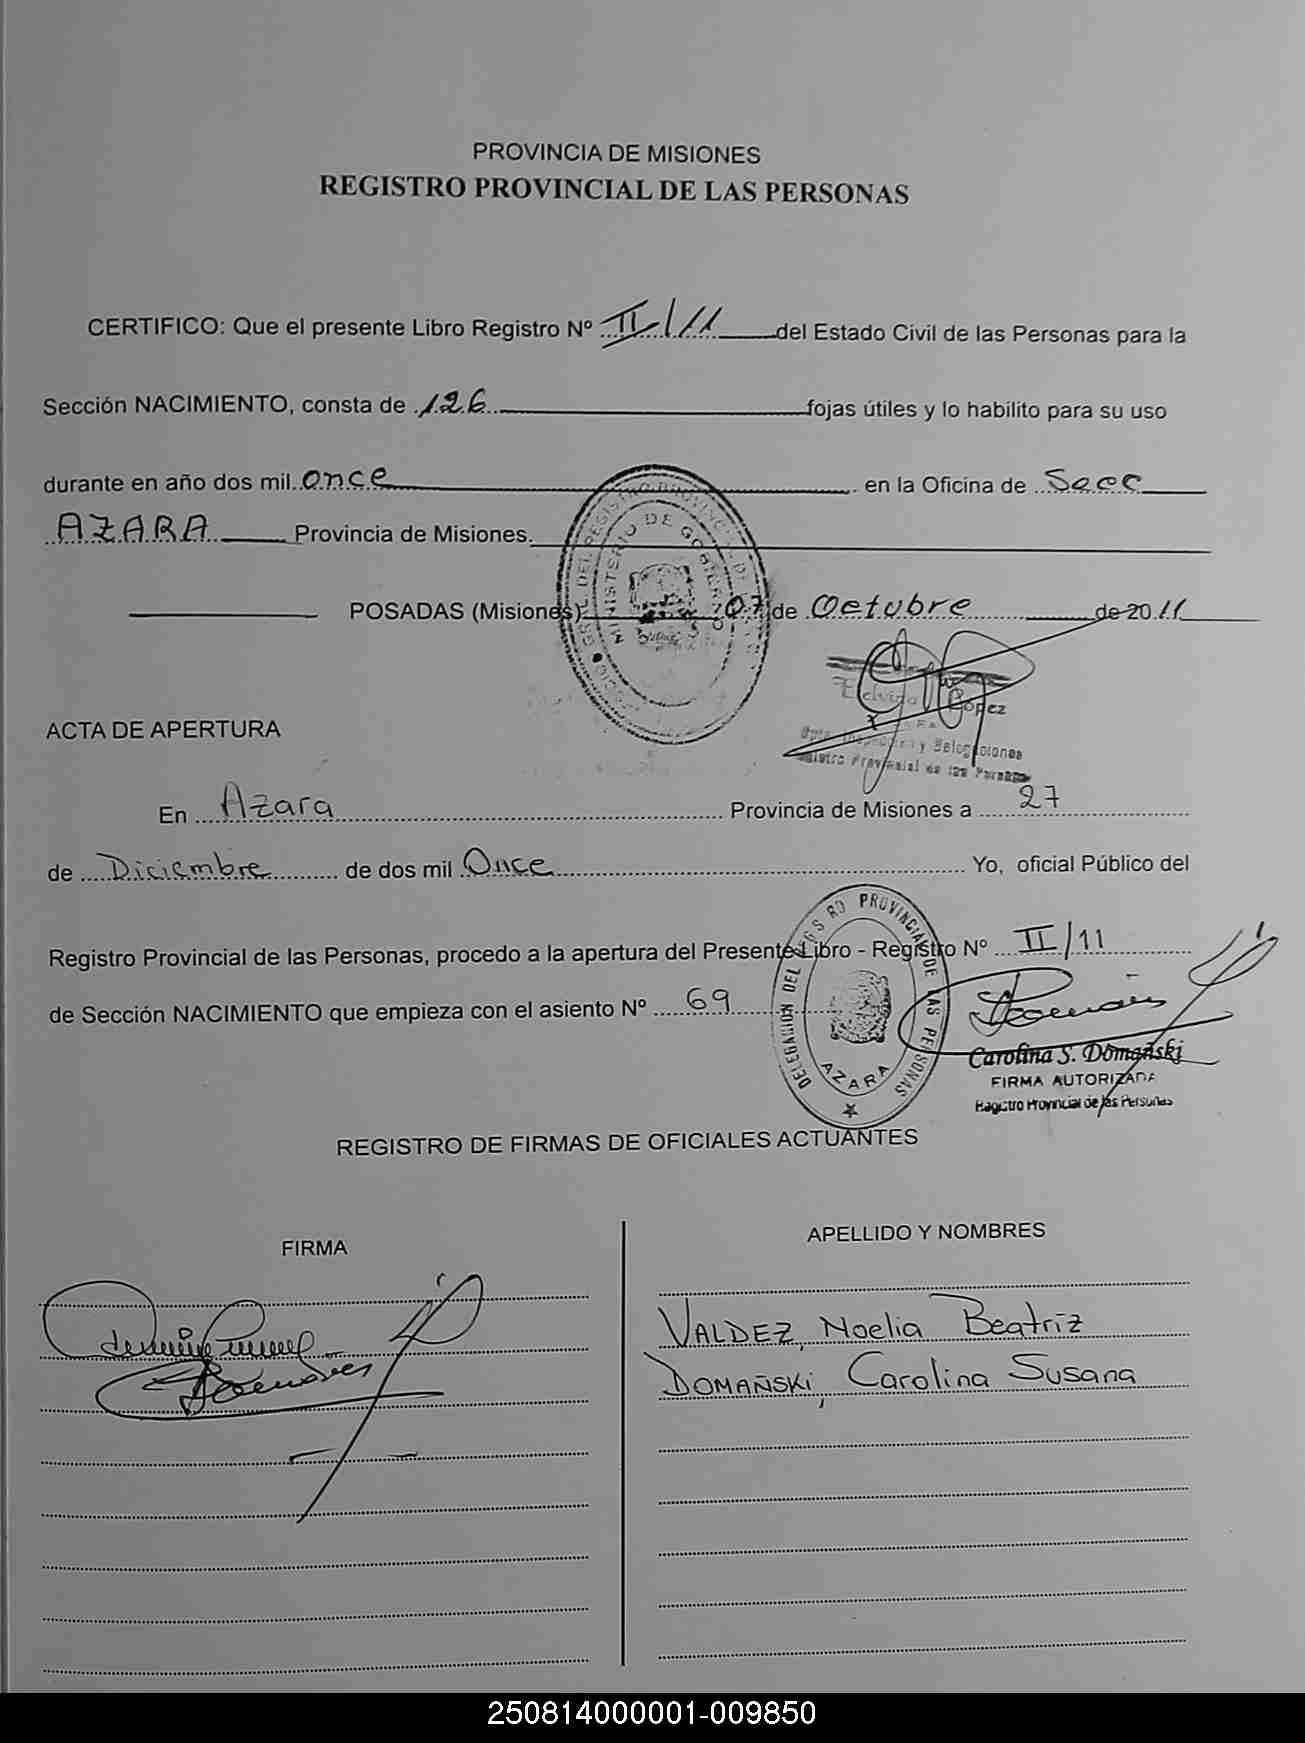 PROVINCIA DE MISIONES
REGISTRO PROVINCIAL DE LAS PERSONAS
CERTIFICO: Que el presente Libro Registro Nº II/11 del Estado Civil de las Personas para la
Sección NACIMIENTO, consta de 126 fojas útiles y lo habilito para su uso
durante en año dos mil once en la Oficina de Secc
AZARA Provincia de Misiones.
POSADAS (Misiones) 07 de Octubre de 2011
MINISTERIO DE GOBIERNO
López
y Delegaciones
ACTA DE APERTURA
En Azara Provincia de Misiones a 27
de Diciembre de dos mil Once Yo, oficial Público del
Registro Provincial de las Personas, procedo a la apertura del Presente Libro - Registro Nº II/11
de Sección NACIMIENTO que empieza con el asiento Nº 69
DELEGACION DEL REGISTRO PROVINCIAL DE LAS PERSONAS
AZARA
Carolina S. Domañski
FIRMA AUTORIZADA
Registro Provincial de las Personas
REGISTRO DE FIRMAS DE OFICIALES ACTUANTES
FIRMA
APELLIDO Y NOMBRES
VALDEZ, Noelia Beatriz
DOMAÑSKI, Carolina Susana
250814000001-009850